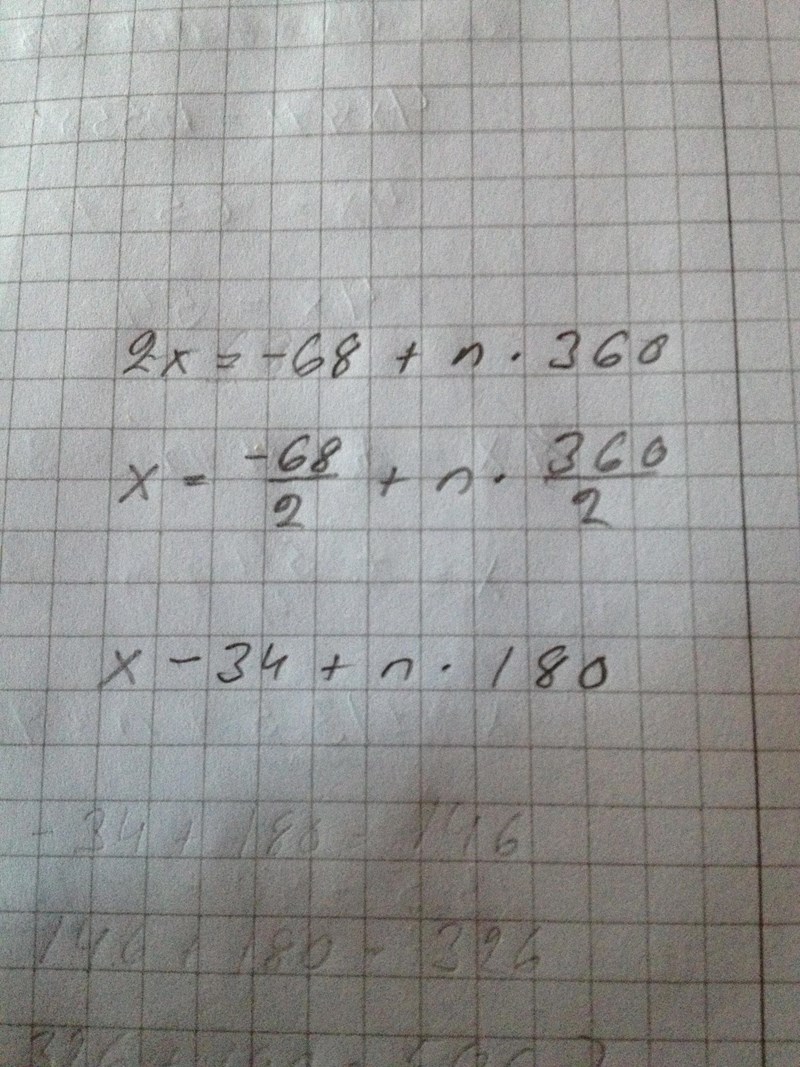 2x = -68 + n · 360
x = -68/2 + n · 360/2
x - 34 + n · 180
-34 + 180 = 146
146 + 180 = 326